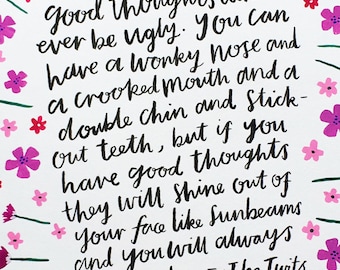 good thoughts
ever be ugly. You can
have a wonky nose and
a crooked mouth and a
double chin and stick-
out teeth, but if you
have good thoughts
they will shine out of
your face like sunbeams
and you will always
The Twits